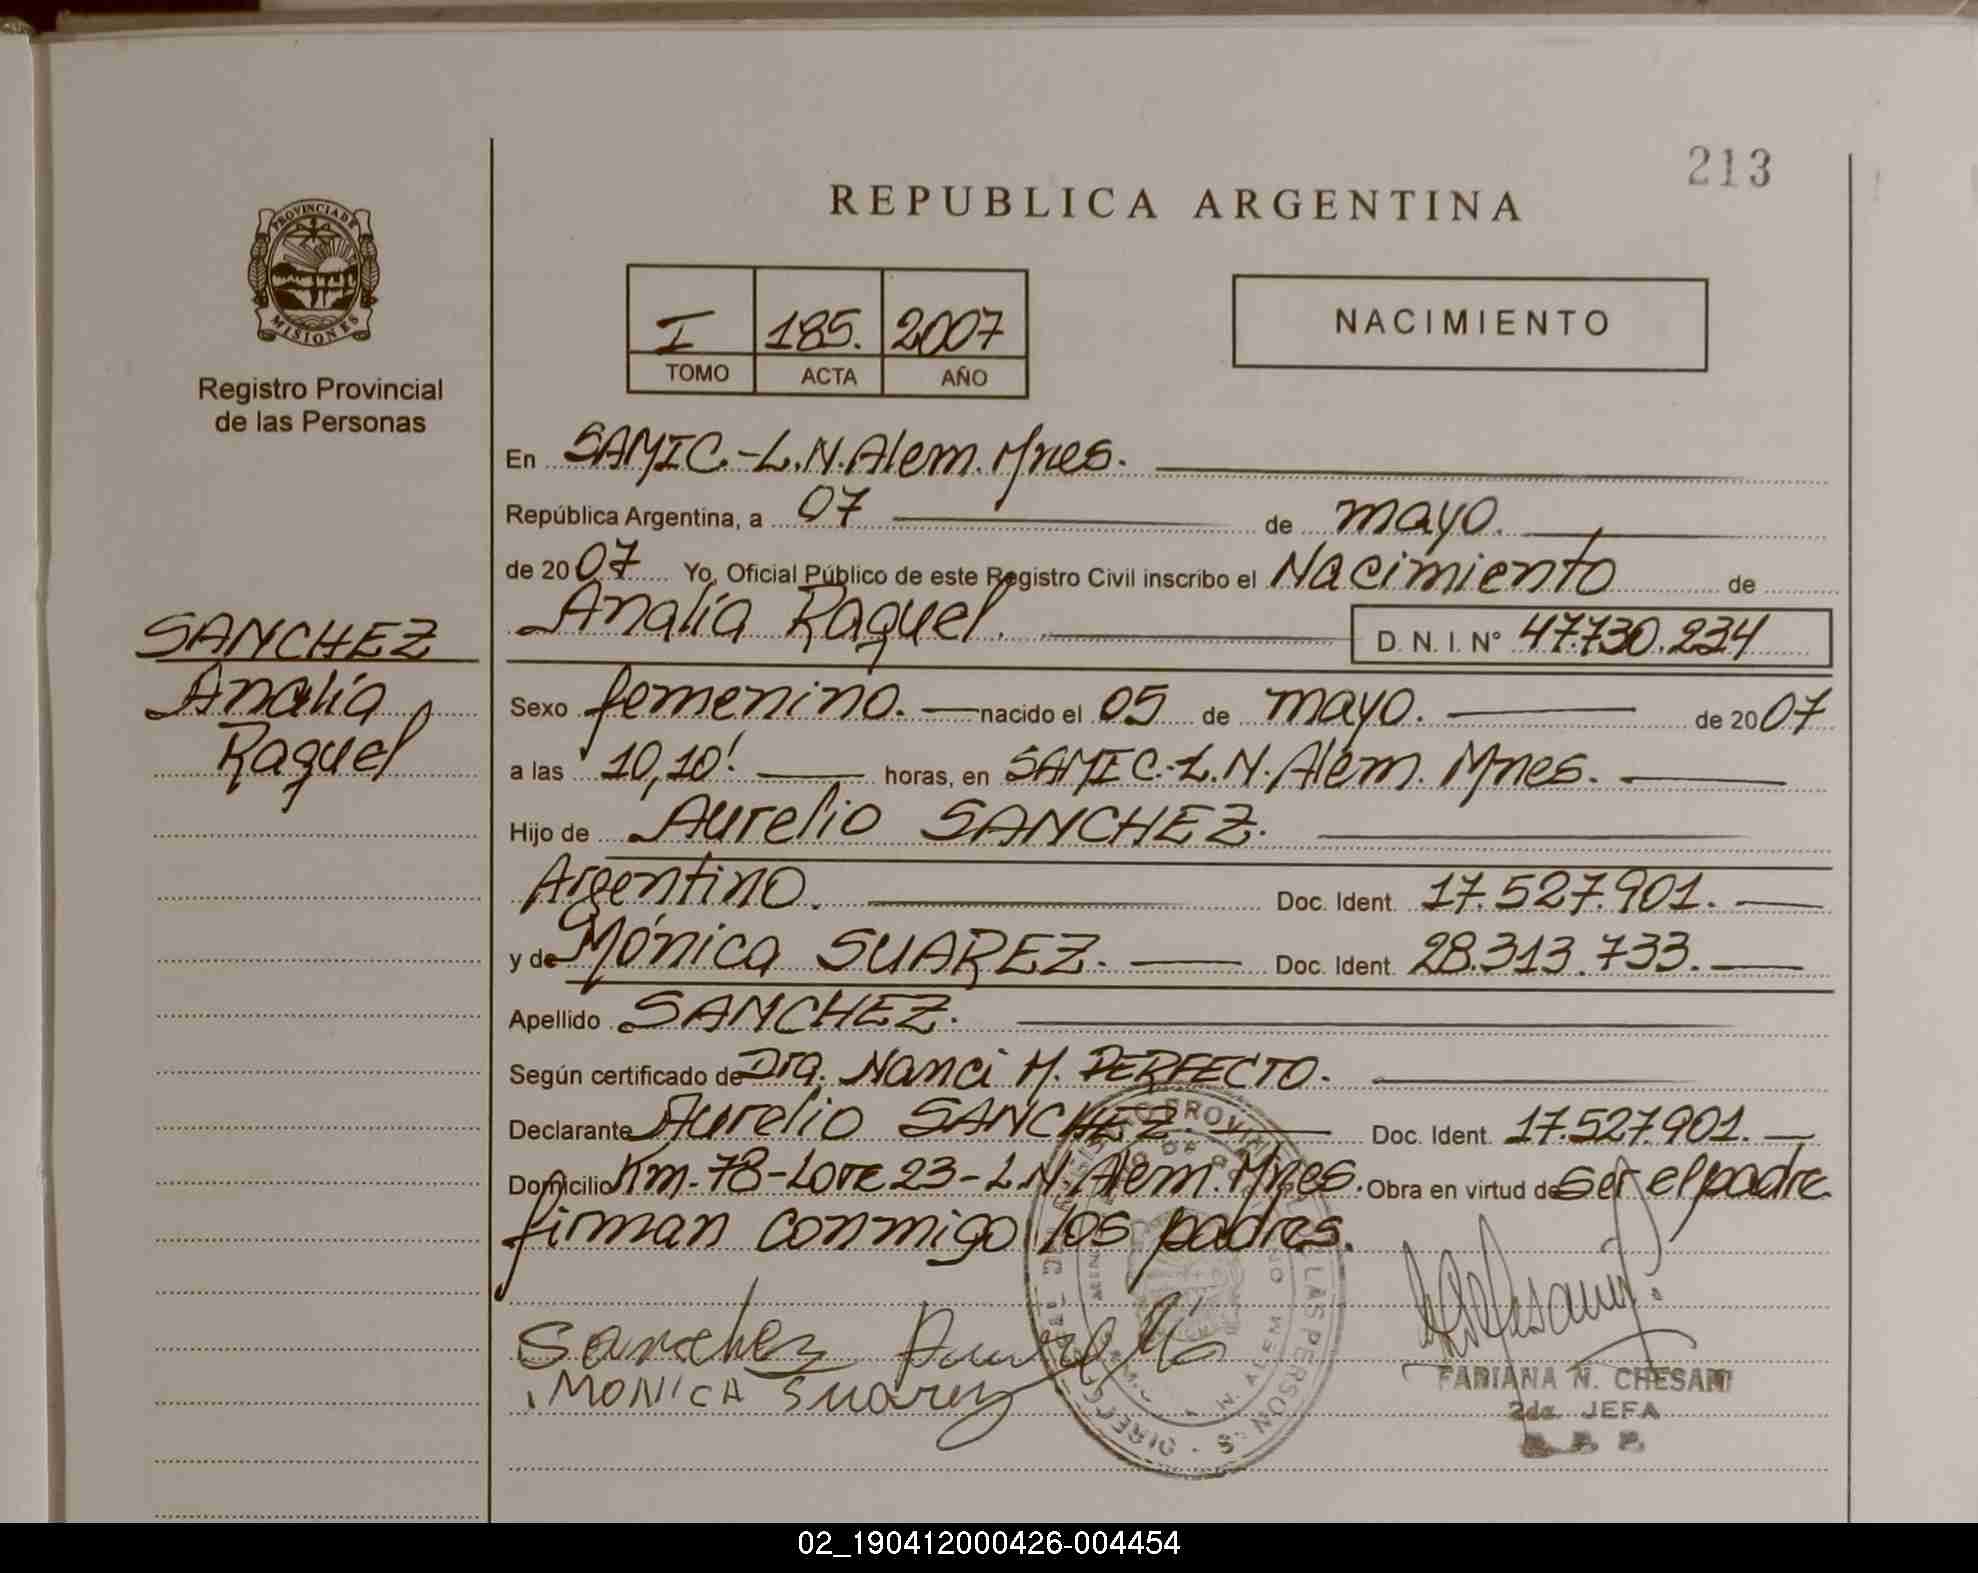 213
REPUBLICA ARGENTINA
PROVINCIA DE
MISIONES
Registro Provincial
de las Personas
I 185. 2007
TOMO ACTA AÑO
NACIMIENTO
En SAMIC.-L.N.Alem.Mnes.
República Argentina, a 07 de mayo.
de 2007 Yo, Oficial Público de este Registro Civil inscribo el Nacimiento de
Analía Raquel. D. N. I. Nº 47.730.234
SANCHEZ
Analía
Raquel
Sexo femenino. nacido el 05 de mayo. de 2007
a las 10,10' horas, en SAMIC.-L.N.Alem. Mnes.
Hijo de Aurelio SANCHEZ.
Argentino. Doc. Ident. 17.527.901.
y de Mónica SUAREZ. Doc. Ident. 28.313.733.
Apellido SANCHEZ.
Según certificado de Dra. Nanci M. PERFECTO.
Declarante Aurelio SANCHEZ. Doc. Ident. 17.527.901.
Domicilio Km.78-Lote 23-L.N.Alem.Mnes. Obra en virtud de ser el padre
firman conmigo los padres.
Sanchez Aurelio
MONICA Suarez
FABIANA N. CHESANI
2da. JEFA
R. P. P.
02_190412000426-004454